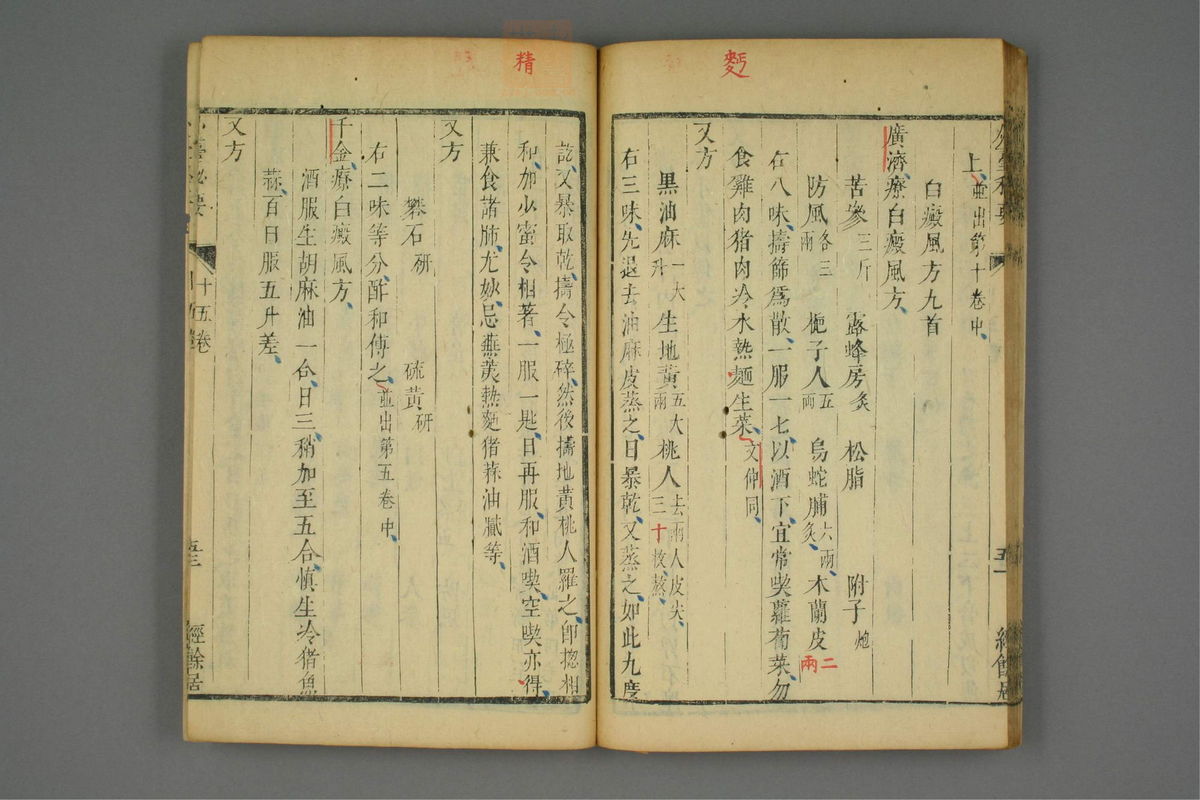 麫
上並出第十卷中
白癜風方九首
廣濟療白癜風方
苦參三斤 露蜂房炙 松脂 附子炮
防風各三兩 梔子人五兩 烏蛇脯六兩炙 木蘭皮二兩
右八味擣篩爲散一服一匕以酒下宜常喫蘿蔔菜勿
食雞肉猪肉冷水熱麵生菜文仲同
又方
黒油麻一大升 生地黃五大兩 桃人去兩人皮尖三十枚蒸
右三味先退去油麻皮蒸之日暴乾又蒸之如此九度
精
訖又暴取乾擣令極碎然後擣地黄桃人羅之即揔相
和加少蜜令相著一服一匙日再服和酒喫空喫亦得
兼食諸肺尤妙忌蕪荑熱麪猪蒜油膩等
又方
礬石研 硫黃研
右二味等分酢和傅之並出第五卷中
千金療白癜風方
酒服生胡麻油一合日三稍加至五合慎生冷猪魚
蒜百日服五升差
又方
十五卷
經餘居